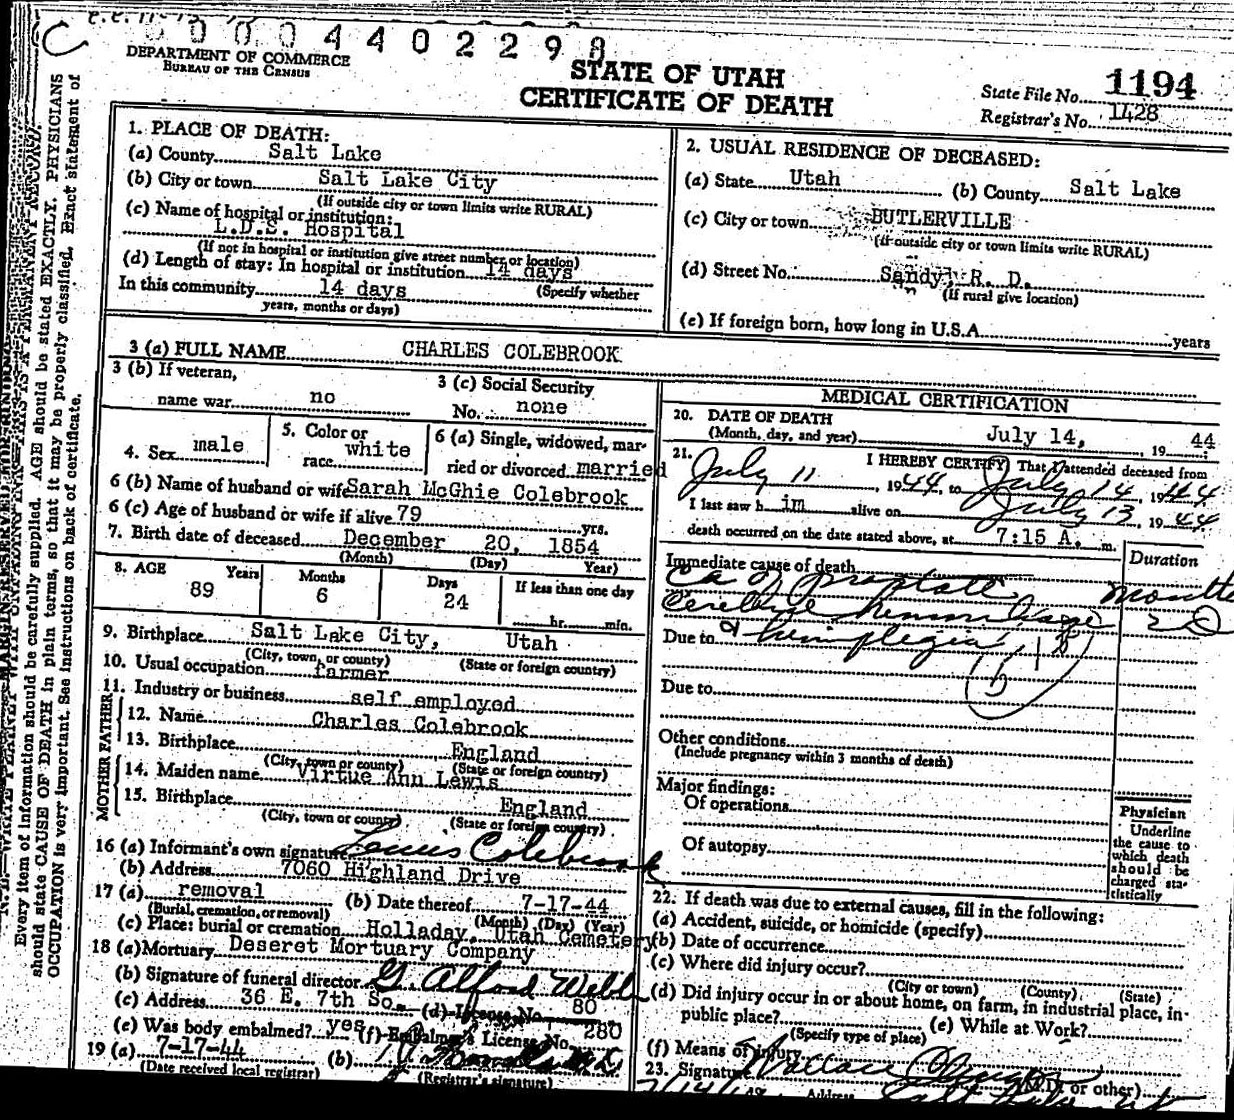 C
0 0 0 4 4 0 2 2 9 8
DEPARTMENT OF COMMERCE
BUREAU OF THE CENSUS
STATE OF UTAH
CERTIFICATE OF DEATH
State File No. 1194
Registrar's No. 1428
Every item of information should be carefully supplied. AGE should be stated EXACTLY. PHYSICIANS
should state CAUSE OF DEATH in plain terms, so that it may be properly classified. Exact statement of
OCCUPATION is very important. See instructions on back of certificate.
1. PLACE OF DEATH:
(a) County Salt Lake
(b) City or town Salt Lake City
(If outside city or town limits write RURAL)
(c) Name of hospital or institution:
L.D.S. Hospital
(If not in hospital or institution give street number or location)
(d) Length of stay: In hospital or institution 14 days
In this community 14 days (Specify whether
years, months or days)
2. USUAL RESIDENCE OF DECEASED:
(a) State Utah (b) County Salt Lake
(c) City or town BUTLERVILLE
(if outside city or town limits write RURAL)
(d) Street No. Sandy, R. D.
(If rural give location)
(e) If foreign born, how long in U.S.A. years
3 (a) FULL NAME CHARLES COLEBROOK
3 (b) If veteran,
name war no
3 (c) Social Security
No. none
4. Sex male
5. Color or
race white
6 (a) Single, widowed, mar-
ried or divorced married
6 (b) Name of husband or wife Sarah McGhie Colebrook
6 (c) Age of husband or wife if alive 79 yrs.
7. Birth date of deceased December 20, 1854
(Month) (Day) Year)
8. AGE Years Months Days If less than one day
89 6 24 hr. min.
9. Birthplace Salt Lake City, Utah
(City, town, or county) (State or foreign country)
10. Usual occupation farmer
11. Industry or business self employed
FATHER
12. Name Charles Colebrook
13. Birthplace England
(City, town or county) (State or foreign country)
MOTHER
14. Maiden name Virtue Ann Lewis
15. Birthplace England
(City, town or county) (State or foreign country)
16 (a) Informant's own signature Colebrook
(b) Address 7060 Highland Drive
17 (a) removal (b) Date thereof 7-17-44
(Burial, cremation, or removal) (Month) (Day) (Year)
(c) Place: burial or cremation Holladay, Utah Cemetery
18 (a) Mortuary Deseret Mortuary Company
(b) Signature of funeral director G. Alford Webb
(c) Address 36 E. 7th So. (d) License No. 80
(e) Was body embalmed? yes (f) Embalmer's License No. 280
19 (a) 7-17-44 (b)
(Date received local registrar) (Registrar's signature)
MEDICAL CERTIFICATION
20. DATE OF DEATH
(Month, day, and year) July 14, 19 44
21. I HEREBY CERTIFY That I attended deceased from
July 11, 1944, to July 14, 1944
I last saw h im alive on July 13, 1944
death occurred on the date stated above, at 7:15 A. m.
Immediate cause of death Duration
Ca of prostate months
Cerebral hemorrhage
Due to & hemiplegia
Due to
Other conditions
(Include pregnancy within 3 months of death)
Major findings:
Of operations
Of autopsy
Physician
Underline
the cause to
which death
should be
charged sta-
tistically
22. If death was due to external causes, fill in the following:
(a) Accident, suicide, or homicide (specify)
(b) Date of occurrence
(c) Where did injury occur?
(City or town) (County) (State)
(d) Did injury occur in or about home, on farm, in industrial place, in
public place? (e) While at Work?
(Specify type of place)
(f) Means of injury
23. Signature Wallace (M.D. or other)
Address Salt Lake